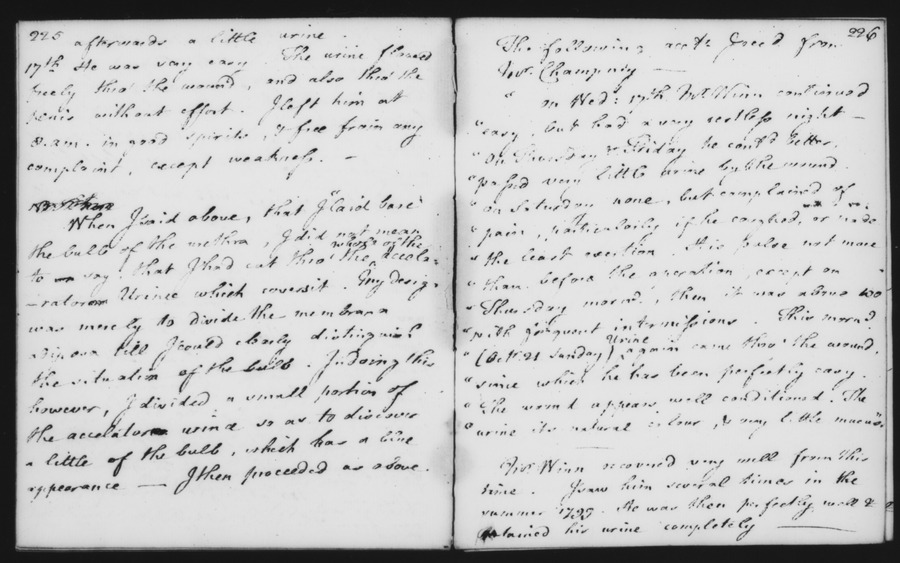 225
afterwards a little urine
17th He was very easy. The urine flowed
freely thro' the wound, and also thro' the
penis without effort. I left him at
8. a.m. in good spirits, & free from any
complaint, except weakness. —
When I said above, that I "laid bare"
the bulb of the urethra, I did not mean
to say, that I had cut thro' the whole of the accela-
-ratores Urinæ which covers it. My design
was merely to divide the membrana
adiposa till I could clearly distinguish
the situation of the bulb. In doing this
however, I divided a small portion of
the accelator urinæ so as to discover
a little of the bulb, which has a blue
appearance — I then proceeded as above.
226
The following acct. I rec'd from
Mr. Champney —
" on Wed: 17th Mr. Winn continued
" easy, but had a very restless night —
" On Thursday & Friday he cont'd better,
" passed very little urine by the wound.
" on Saturday none, but complained of
" pain, particularly if he coughed, or made
" the least exertion. His pulse not more
" than before the operation, except on
" Thursday morn'g, then it was above 100
" with frequent intermissions. This morn'g
" (Oct: 21 Sunday) Urine again came thro' the wound,
" since which he has been perfectly easy.
" The wound appears well conditioned. The
" urine its natural colour, & very little mucus"
Mr. Winn recovered very well from this
time. I saw him several times in the
summer 1799. He was then perfectly well &
retained his urine completely